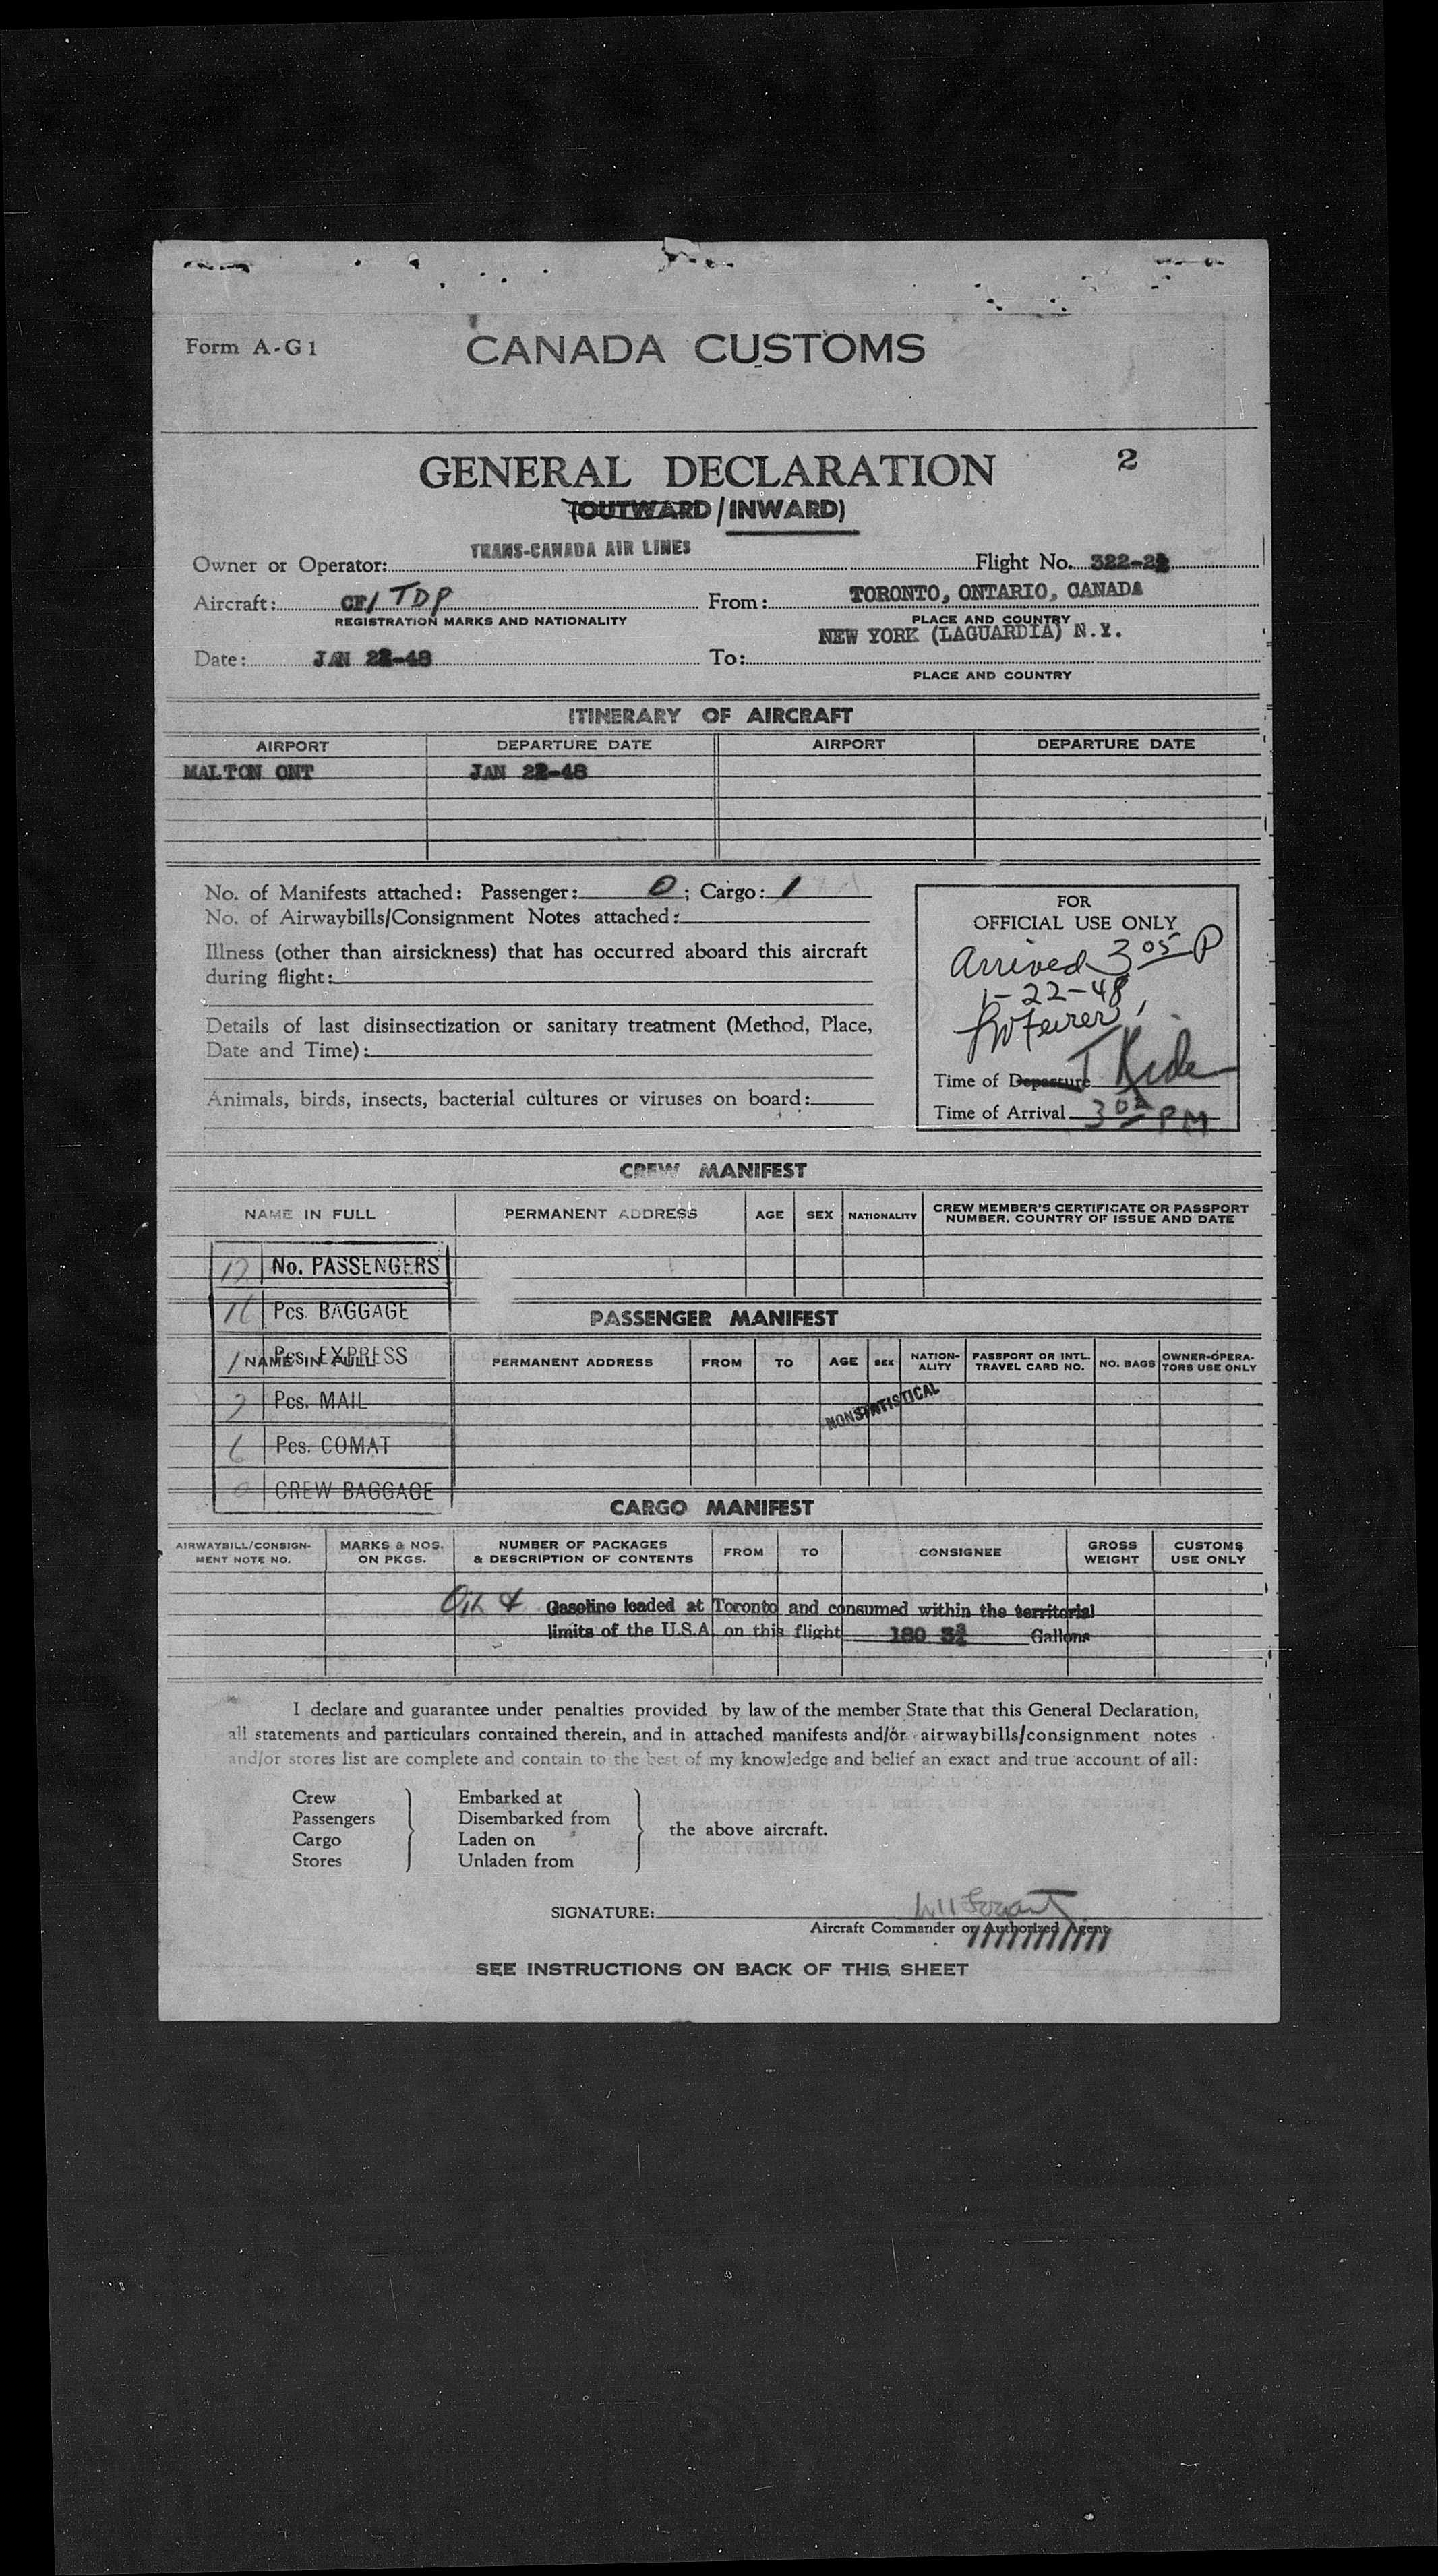 Form A-G1
CANADA CUSTOMS
GENERAL DECLARATION 2
(OUTWARD/INWARD)
Owner or Operator: TRANS-CANADA AIR LINES Flight No. 322-22
Aircraft: CF/ TDP From: TORONTO, ONTARIO, CANADA
REGISTRATION MARKS AND NATIONALITY PLACE AND COUNTRY
NEW YORK (LAGUARDIA) N.Y.
Date: JAN 22-48 To:
PLACE AND COUNTRY
ITINERARY OF AIRCRAFT
AIRPORT DEPARTURE DATE AIRPORT DEPARTURE DATE
MALTON ONT JAN 22-48
No. of Manifests attached: Passenger: 0; Cargo: 1
No. of Airwaybills/Consignment Notes attached:
Illness (other than airsickness) that has occurred aboard this aircraft
during flight:
Details of last disinsectization or sanitary treatment (Method, Place,
Date and Time):
Animals, birds, insects, bacterial cultures or viruses on board:
FOR
OFFICIAL USE ONLY
Arrived 3 05 P
1-22-48
Time of Departure
Time of Arrival 3 02 PM
CREW MANIFEST
NAME IN FULL PERMANENT ADDRESS AGE SEX NATIONALITY CREW MEMBER'S CERTIFICATE OR PASSPORT
NUMBER, COUNTRY OF ISSUE AND DATE
No. PASSENGERS
Pcs. BAGGAGE
PASSENGER MANIFEST
1 Pcs. EXPRESS
NAME IN FULL PERMANENT ADDRESS FROM TO AGE SEX NATION-
ALITY PASSPORT OR INTL.
TRAVEL CARD NO. NO. BAGS OWNER-OPERA-
TORS USE ONLY
NONSTATISTICAL
Pcs. MAIL
6 Pcs. COMAT
0 CREW BAGGAGE
CARGO MANIFEST
AIRWAYBILL/CONSIGN-
MENT NOTE NO. MARKS & NOS.
ON PKGS. NUMBER OF PACKAGES
& DESCRIPTION OF CONTENTS FROM TO CONSIGNEE GROSS
WEIGHT CUSTOMS
USE ONLY
Oil & Gasoline loaded at Toronto and consumed within the territorial
limits of the U.S.A. on this flight 180 3¾ Gallons
I declare and guarantee under penalties provided by law of the member State that this General Declaration,
all statements and particulars contained therein, and in attached manifests and/or airwaybills/consignment notes
and/or stores list are complete and contain to the best of my knowledge and belief an exact and true account of all:
Crew Embarked at
Passengers Disembarked from
Cargo Laden on
Stores Unladen from
the above aircraft.
SIGNATURE:
Aircraft Commander or Authorized Agent
SEE INSTRUCTIONS ON BACK OF THIS SHEET